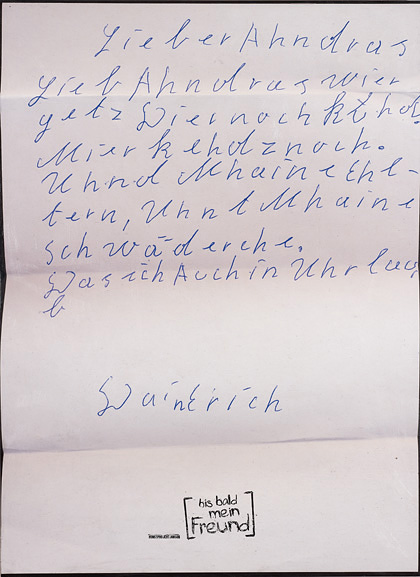 Lieber Ahndras
Lieb Ahndras wier
getz Dier noch kt hof
Mier k ehdz noch.
Uhnd Mhaine Ehl-
tern, Uhnt Mhaine
schwäderche.
Was ich Auch in Uhrlau
b
Dain Erich
bis bald
mein
Freund